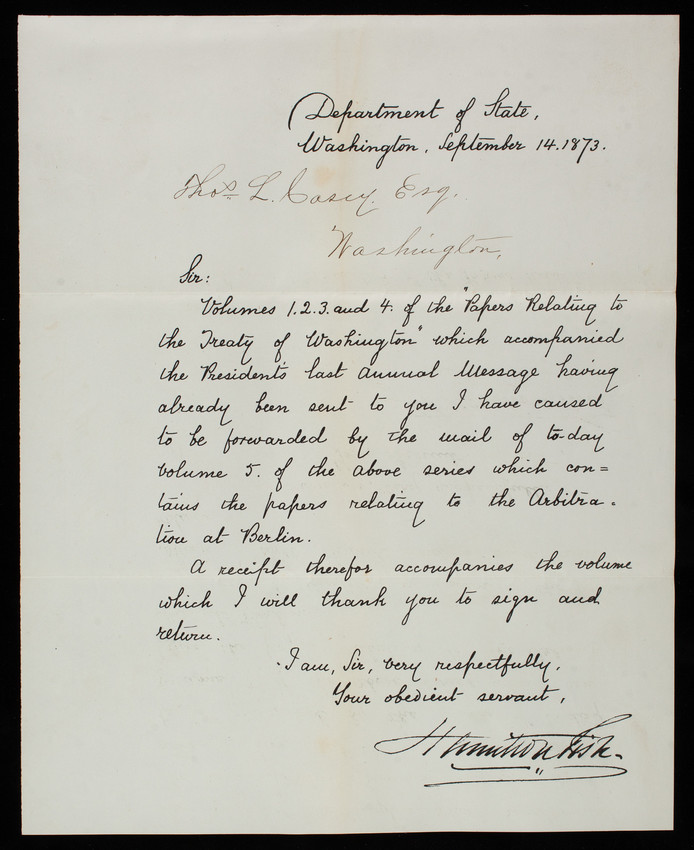 Department of State,
Washington, September 14. 1873.
Thos. L. Casey. Esq.
Washington,
Sir:
Volumes 1. 2. 3. and 4. of the "Papers Relating to
the Treaty of Washington" which accompanied
the President's last annual Message having
already been sent to you I have caused
to be forwarded by the mail of to-day
volume 5. of the above series which con=
tains the papers relating to the Arbitra=
tion at Berlin.
A receipt therefor accompanies the volume
which I will thank you to sign and
return.
I am, Sir, very respectfully.
Your obedient servant,
Hamilton Fish.